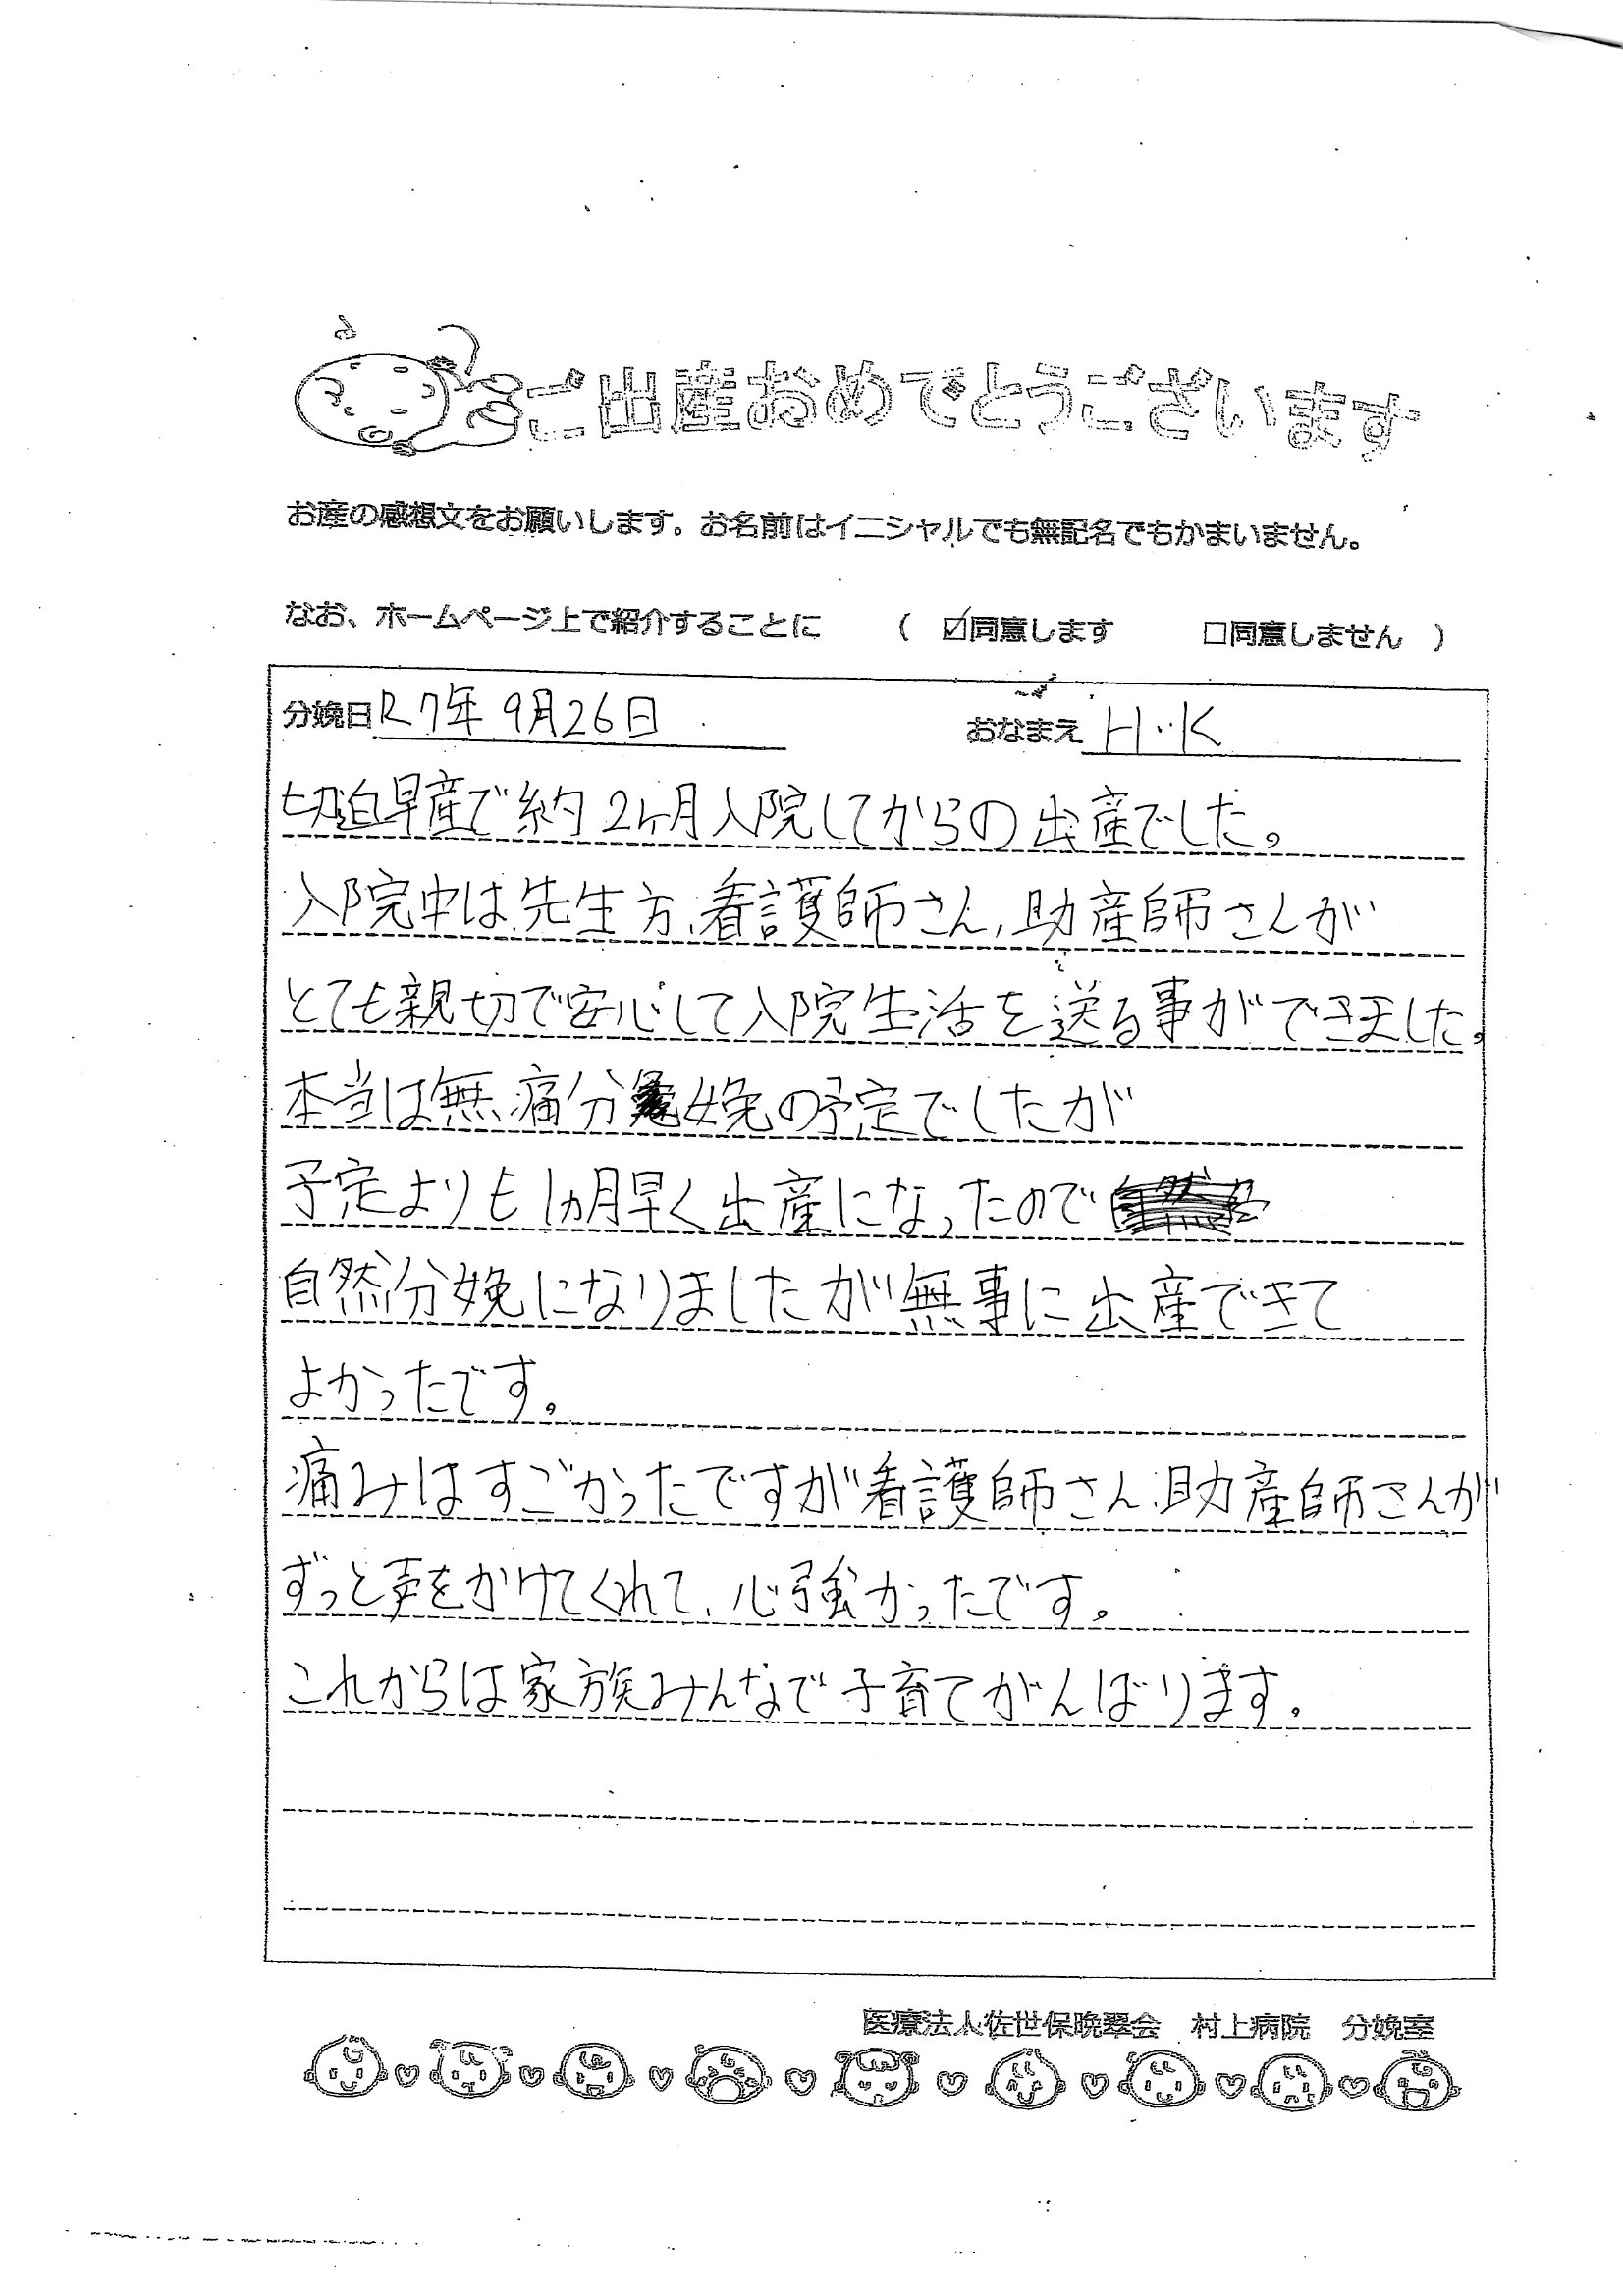 ご出産おめでとうございます
お産の感想文をお願いします。お名前はイニシャルでも無記名でもかまいません。
なお、ホームページ上で紹介することに （ ☑同意します □同意しません ）
分娩日 R7年9月26日 おなまえ H・K
切迫早産で約2ヶ月入院してからの出産でした。
入院中は先生方、看護師さん、助産師さんが
とても親切で安心して入院生活を送る事ができました。
本当は無痛分娩の予定でしたが
予定よりも1ヵ月早く出産になったので
自然分娩になりましたが無事に出産できて
よかったです。
痛みはすごかったですが看護師さん、助産師さんが
ずっと声をかけてくれて、心強かったです。
これからは家族みんなで子育てがんばります。
医療法人佐世保晩翠会 村上病院 分娩室